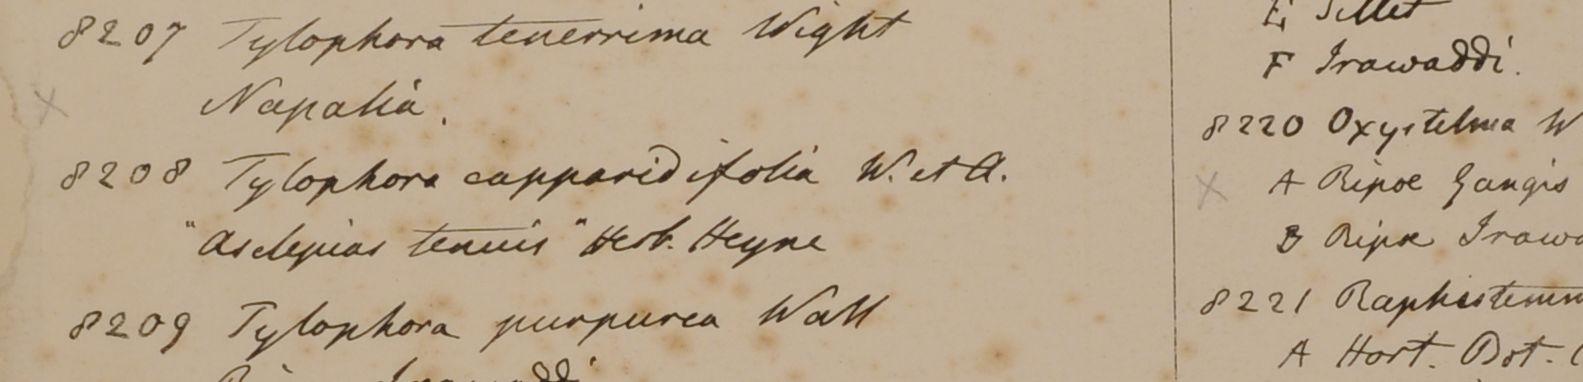 8207 Tylophora tenerrima Wight
Napalia.
8208 Tylophora capparidifolia W. et A.
"Asclepias tenuis" Herb. Heyne
8209 Tylophora purpurea Wall
Irawaddi
E Sillet
F Irawaddi.
8220 Oxystelma W
A Ripoe Gangis
B Ripae Irawa
8221 Raphistemm
A Hort. Bot. C